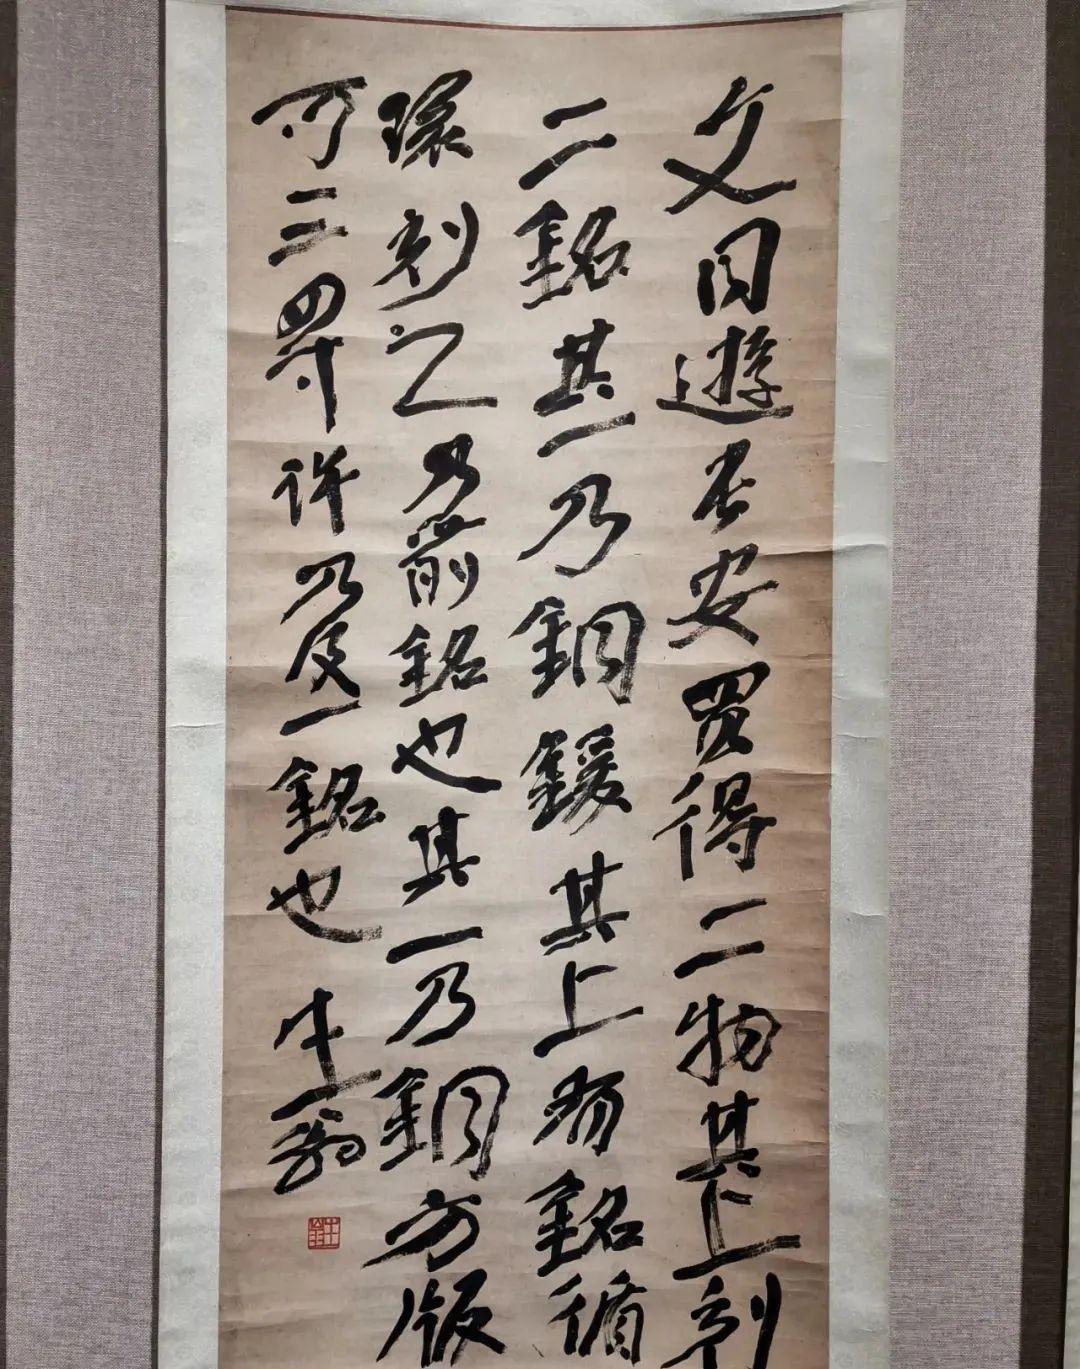 文同遊長安買得二物其上刻
二銘其一乃銅鍰其上有銘循
環刻之乃前銘也其一乃銅方版
可三四寸許乃一銘也 生翁